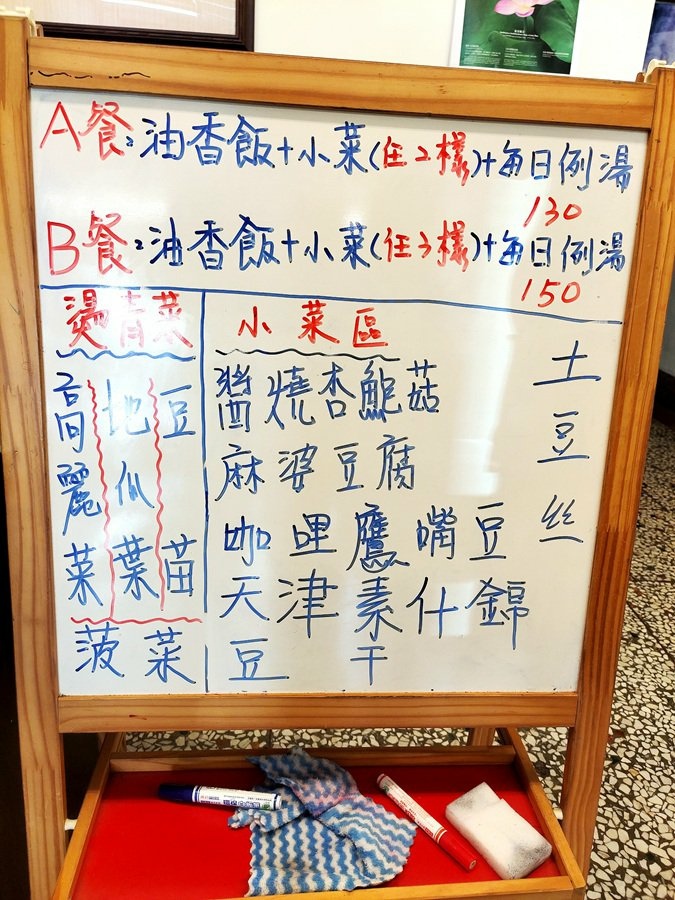 A餐:油香飯+小菜(任2樣)+每日例湯
130
B餐:油香飯+小菜(任3樣)+每日例湯
150
燙青菜
高麗菜
地瓜葉
豆苗
菠菜
小菜區
醬燒杏鮑菇
麻婆豆腐
咖哩鷹嘴豆
天津素什錦
豆干
土豆丝